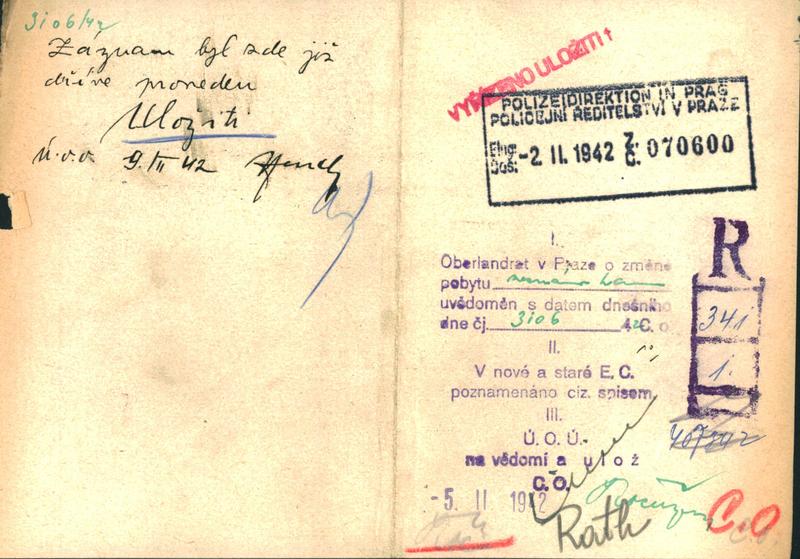 3106/42
Záznam byl zde již
dříve proveden
Uložiti
Ú.o.ú. 9. II 42
VYŘÍZENO ULOŽITI!
POLIZEIDIREKTION IN PRAG
POLICEJNÍ ŘEDITELSTVÍ V PRAZE
Eing:
Doš:
-2. II. 1942
Z.
Č.
070600
I.
Oberlandrat v Praze o změně
pobytu
uvědoměn s datem dnešního
dne čj. 3106 42 C. o.
II.
V nové a staré E. C.
poznamenáno ciz. spisem.
III.
Ú. O. Ú.
na vědomí a ulož
C. O.
-5. II 1942
R
341
1.
Rath
C.O